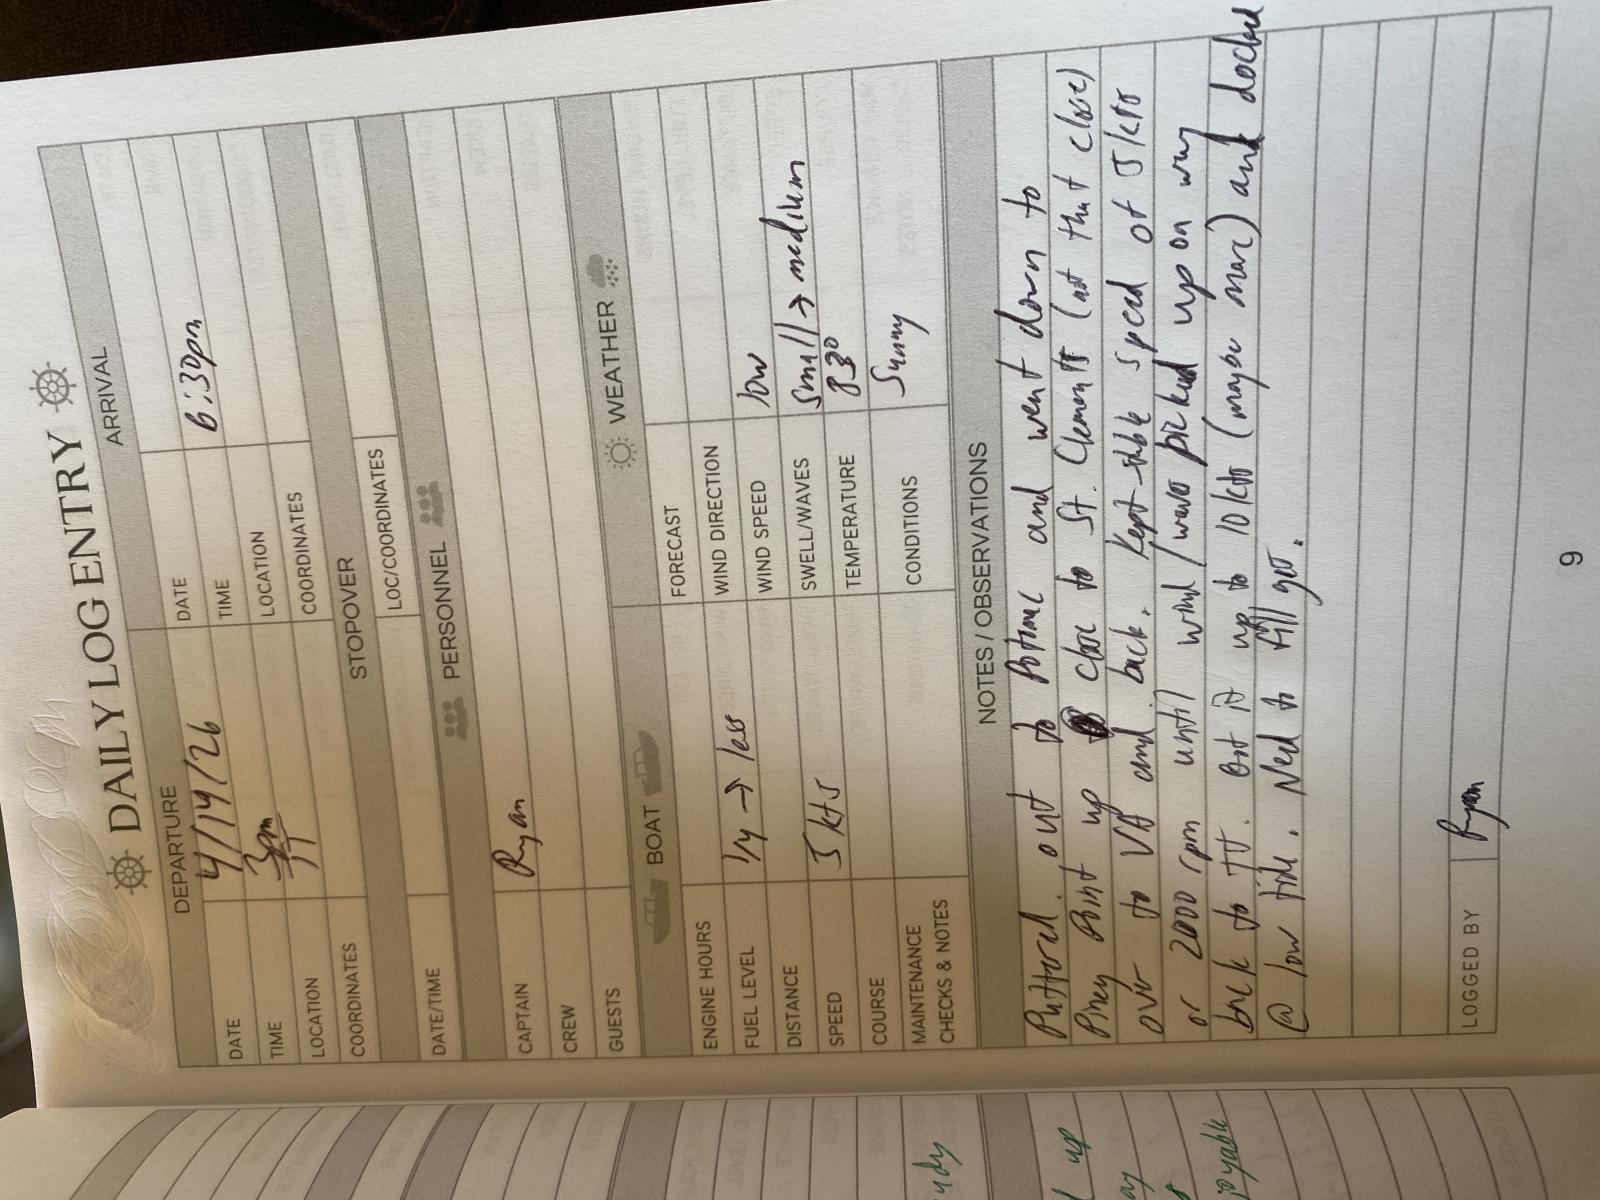 DAILY LOG ENTRY
DEPARTURE
ARRIVAL
DATE 4/14/26
DATE
TIME 3pm
TIME 6:30pm
LOCATION
LOCATION
COORDINATES
COORDINATES
STOPOVER
DATE/TIME
LOC/COORDINATES
PERSONNEL
CAPTAIN Ryan
CREW
GUESTS
BOAT
WEATHER
ENGINE HOURS
FORECAST
FUEL LEVEL 1/4 → less
WIND DIRECTION
DISTANCE
WIND SPEED low
SPEED 5 kts
SWELL/WAVES Small → medium
COURSE
TEMPERATURE 83°
MAINTENANCE
CHECKS & NOTES
CONDITIONS Sunny
NOTES / OBSERVATIONS
Puttered out to Potomac and went down to
Piney Point up close to St. Clements (not that close)
over to VA and back. Kept stable speed of 5/kts
or 2000 rpm until wind/waves picked up on way
back to TT. Got it up to 10kts (maybe more) and docked
@ low tide. Need to fill gas.
LOGGED BY Ryan
9
up
joyable